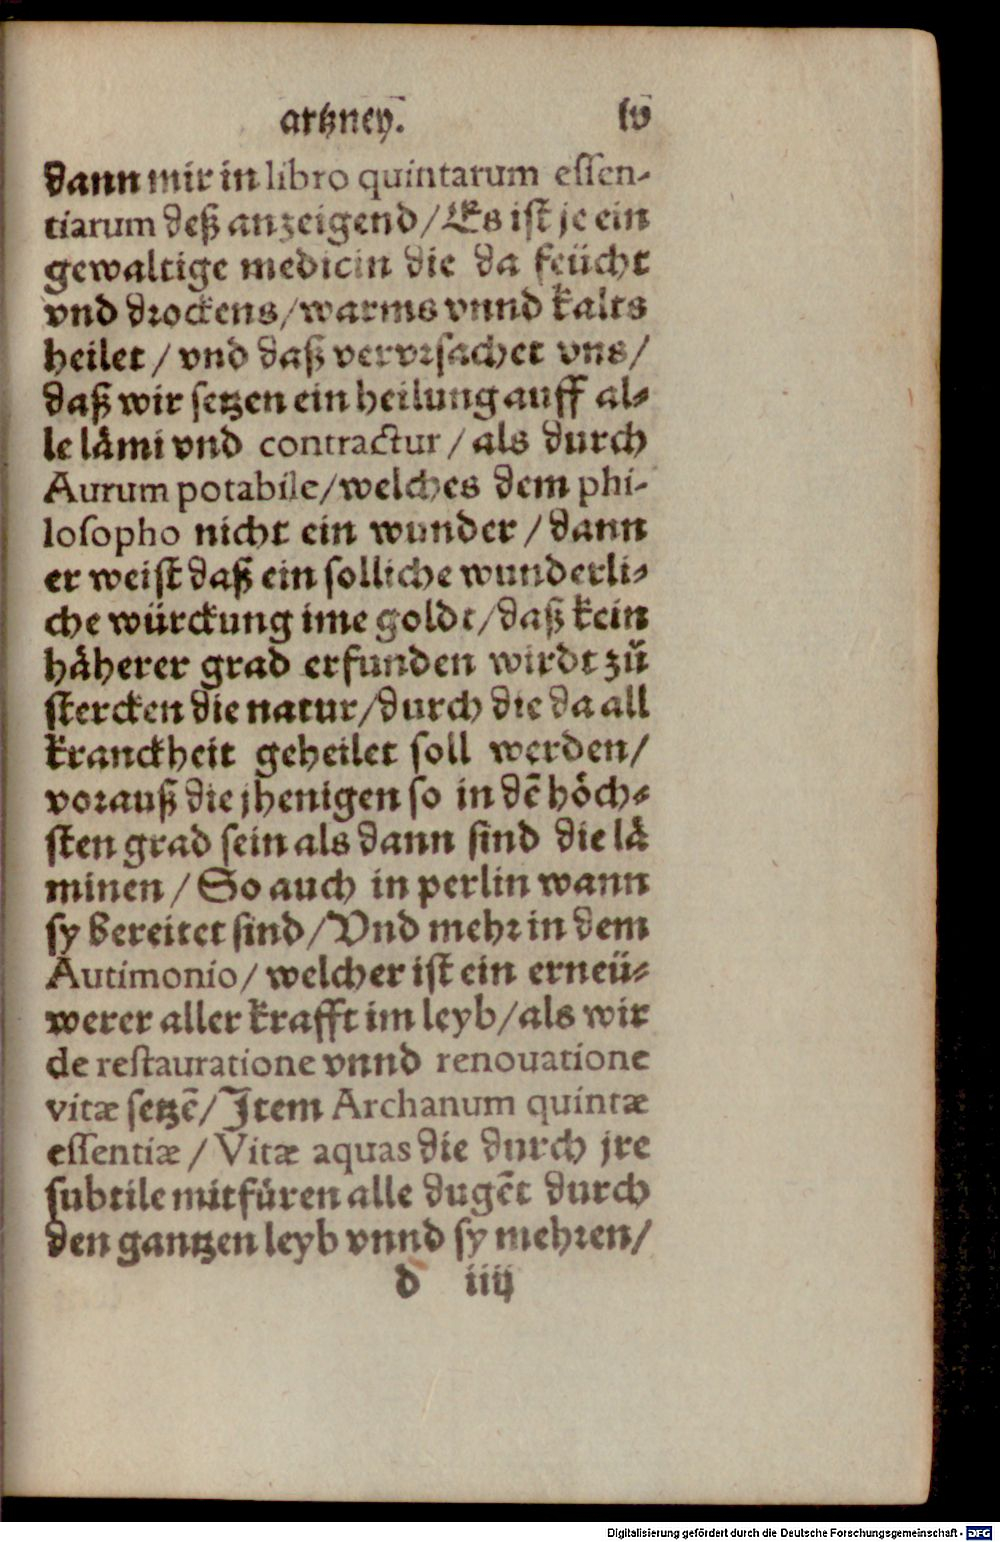 artzney. lv
dann mir in libro quintarum essen-
tiarum deß anzeigend/Es ist je ein
gewaltige medicin die da feücht
vnd drockens/warms vnnd kalts
heilet/vnd daß vervrsachet vns/
daß wir setzen ein heilung auff al-
le lämi vnd contractur/als durch
Aurum potabile/welches dem phi-
losopho nicht ein wunder/dann
er weist daß ein solliche wunderli-
che würckung ime goldt/daß kein
häherer grad erfunden wirdt zů
stercken die natur/durch die da all
kranckheit geheilet soll werden/
vorauß die jhenigen so in dē höch-
sten grad sein als dann sind die lä
minen/So auch in perlin wann
sy bereitet sind/Vnd mehr in dem
Autimonio/welcher ist ein erneü-
werer aller krafft im leyb/als wir
de restauratione vnnd renouatione
vitæ setzē/Item Archanum quintæ
essentiæ/Vitæ aquas die durch jre
subtile mitfüren alle dugēt durch
den gantzen leyb vnnd sy mehren/
d iiij
Digitalisierung gefördert durch die Deutsche Forschungsgemeinschaft - DFG